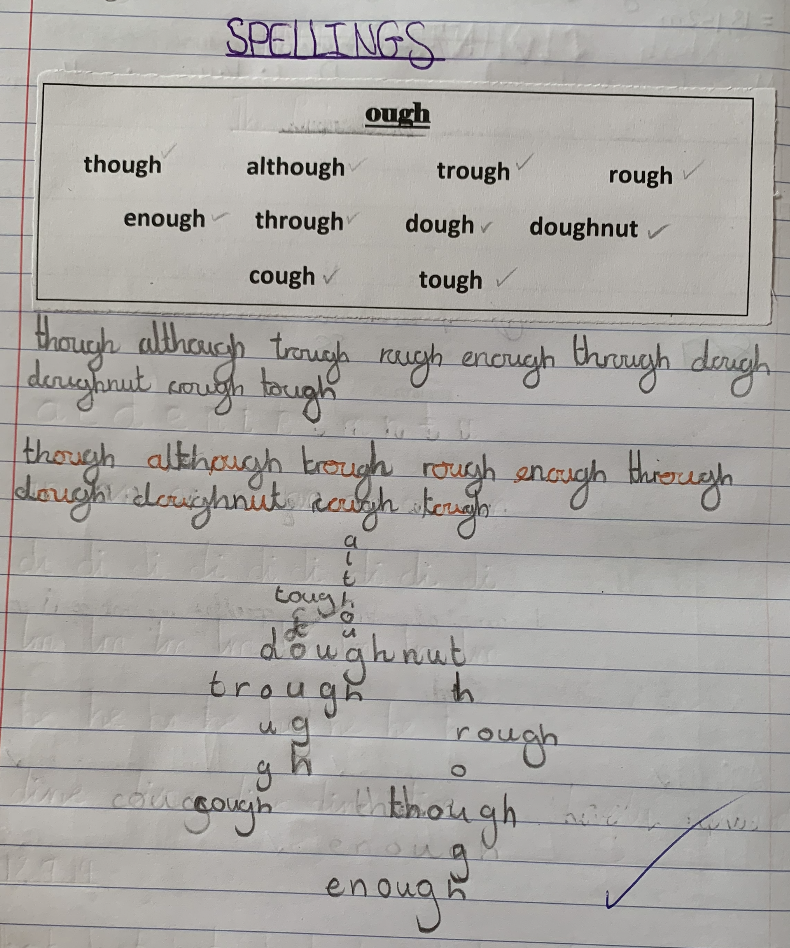 SPELLINGS
ough
though although trough rough
enough through dough doughnut
cough tough
though although trough rough enough through dough
doughnut cough tough
though although trough rough enough through
dough doughnut cough tough
a
l
t
tough
o
d u
doughnut
trough h
u g rough
g h o
cough though
g
enough